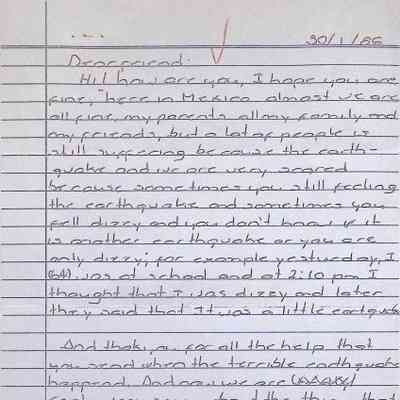 30/1/86
Dear friend:
Hi! how are you, I hope you are
fine, here in Mexico almost we are
all fine, my parents all my family and
my friends, but a lot of people is
still suffering because the earth-
quake and we are very scared
because sometimes you still feeling
the earthquake and sometimes you
fell dizzy and you don't know if it
is another earthquake or you are
only dizzy; for example yesturday, I
was at school and at 2:10 pm I
thought that I was dizzy and later
they said that It was a little earthquake
And thank you for all the help that
you send when the terrible earthquake
happend. And now we are
that